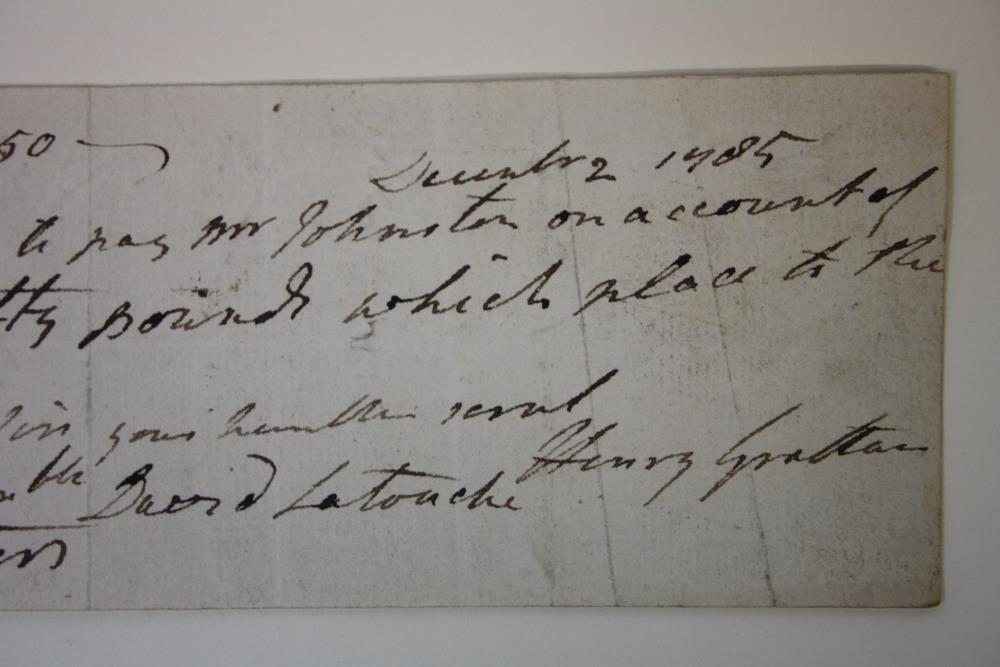 50
Decembr 2 1785
to pay Mr Johnston on account of
tty pounds which place to the
your humble servt
ble David Latouche Henry Grattan
ers